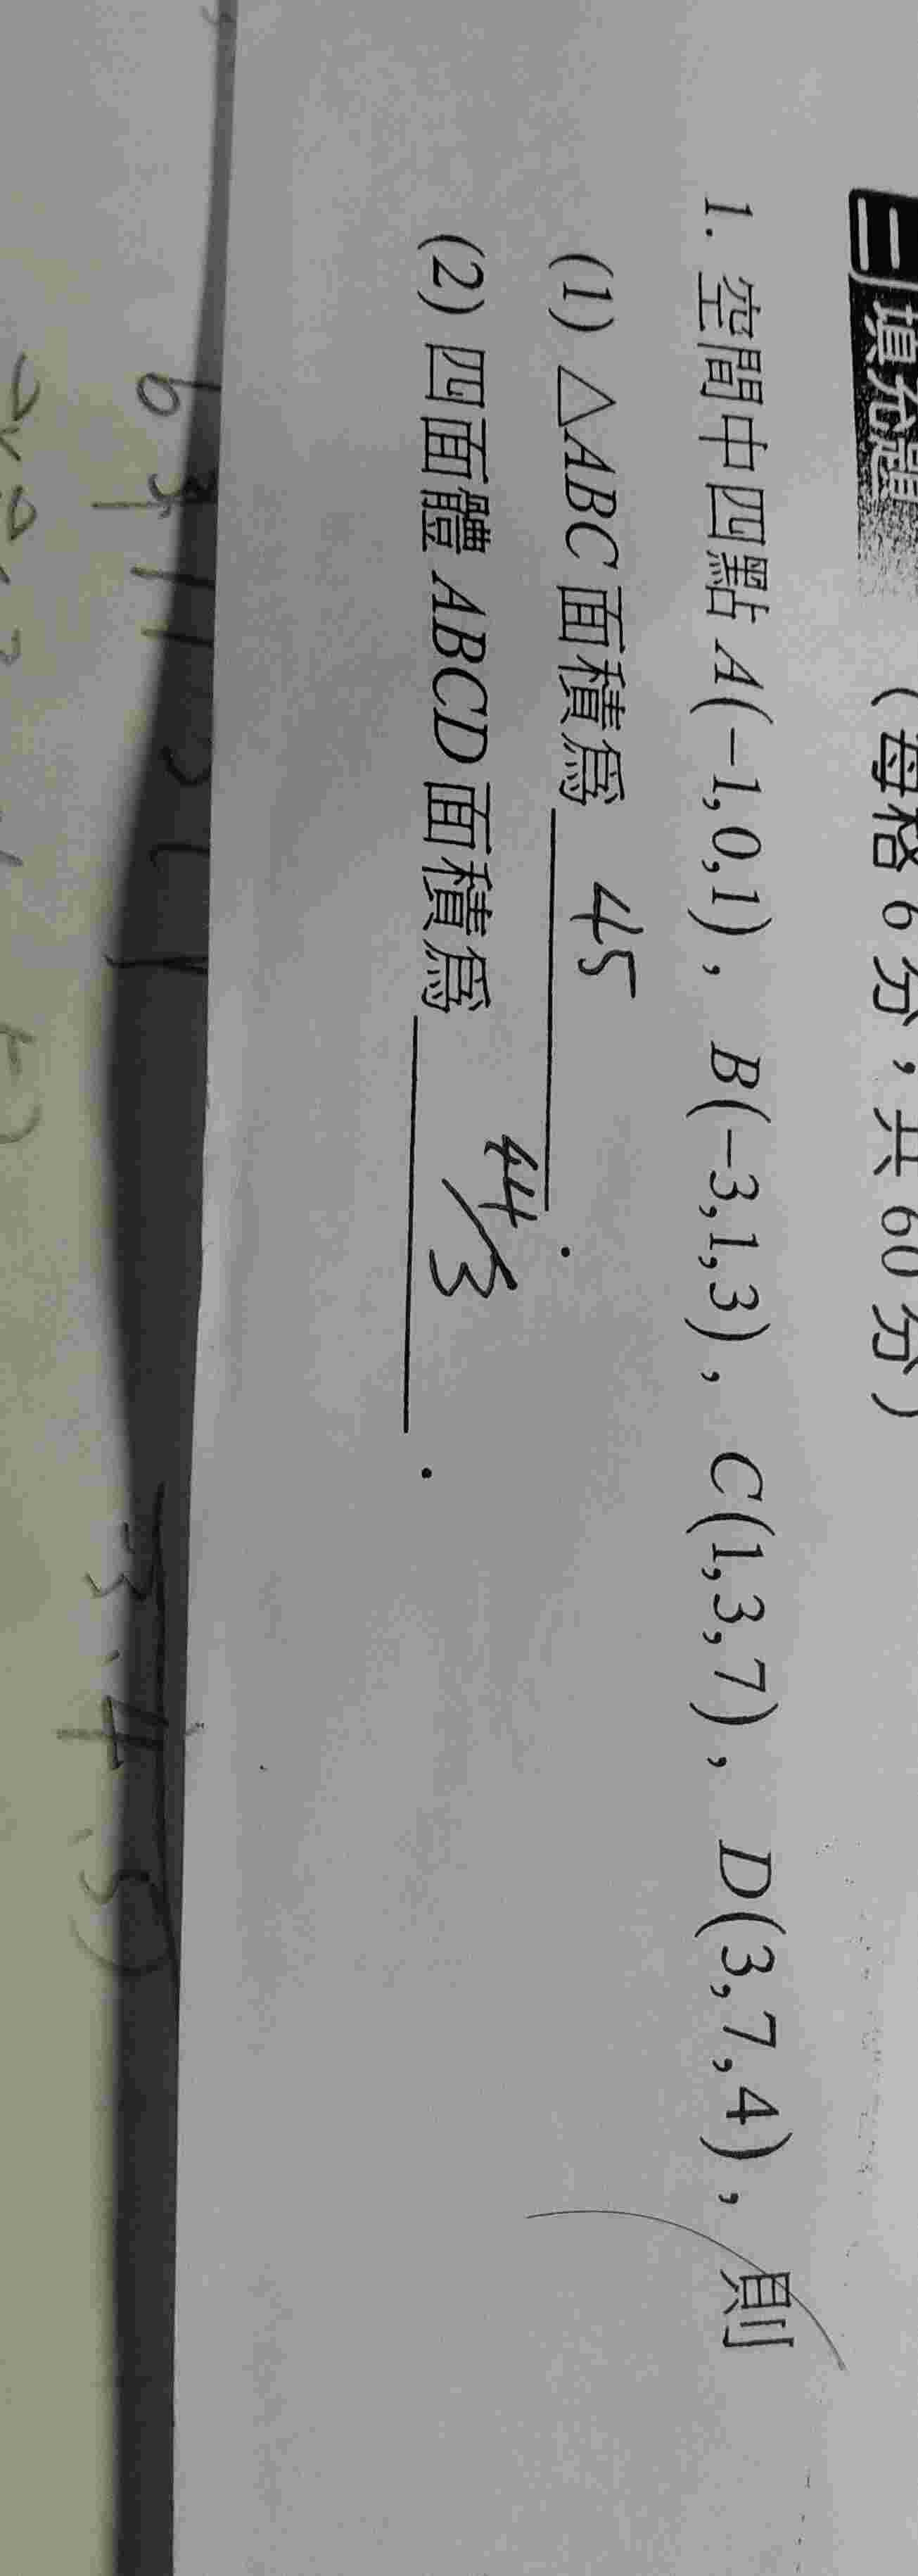 二 填充題 (每格 6 分，共 60 分)
1. 空間中四點 A(-1,0,1), B(-3,1,3), C(1,3,7), D(3,7,4), 則
(1) △ABC 面積為 45 .
(2) 四面體 ABCD 面積為 44/3 .